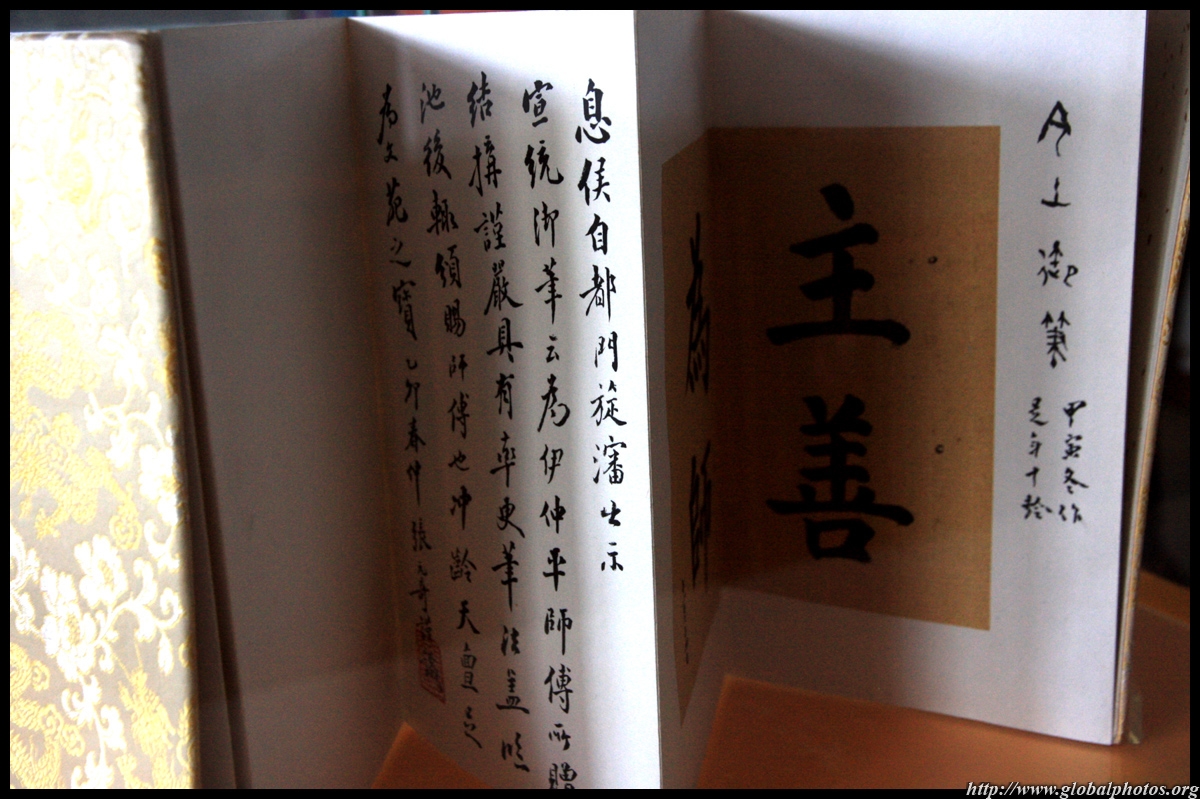 今上御筆
甲寅冬作
是年十齡
主善
為師
息侯自都門旋瀋出示
宣統御筆云為伊仲平師傅所贈
結構謹嚴具有率更筆法蓋臨
池後輙頒賜師傅也冲齡天亶足
為文苑之寶乙卯春仲張元奇謹
http://www.globalphotos.org